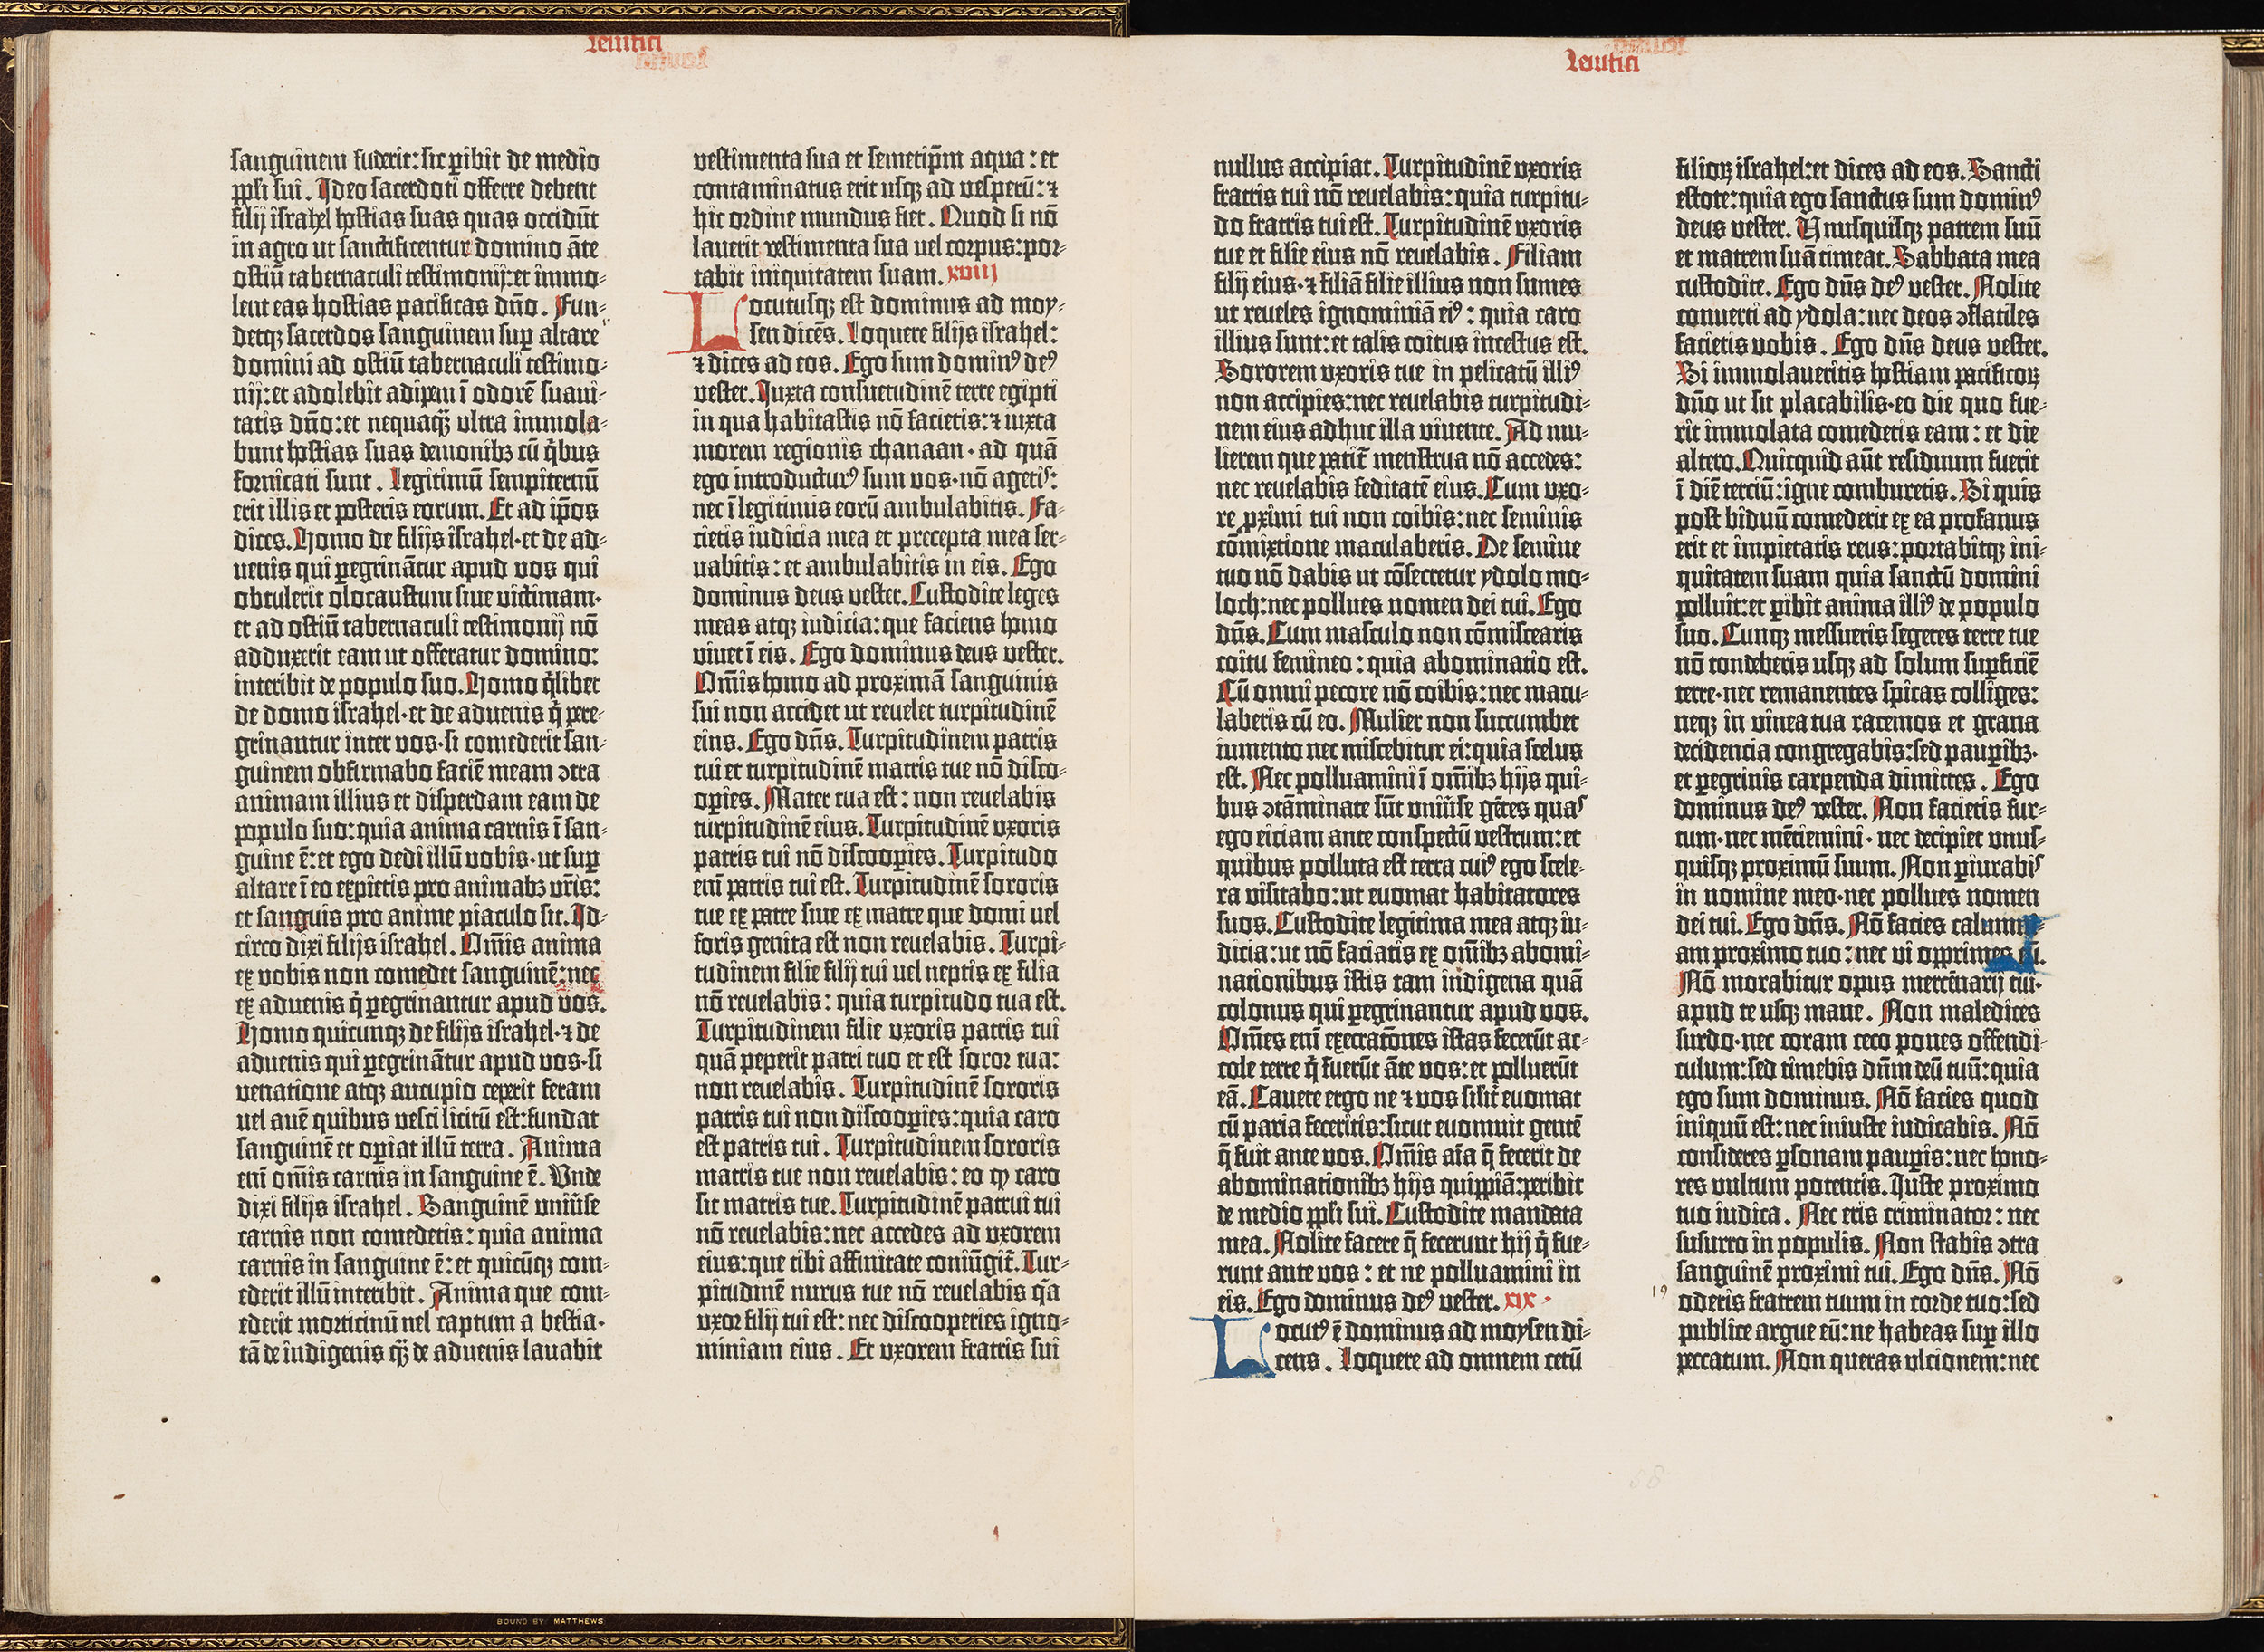 leuitici
sanguinem fuderit: sic ꝑibit de medio
ppl̄i sui. Ideo sacerdoti offerre debent
filij israhel hostias suas quas occidūt
in agro ut sanctificentur domino āte
ostiū tabernaculi testimonij: et immo-
lent eas hostias pacificas dn̄o. Fun-
detqꝫ sacerdos sanguinem suꝑ altare
domini ad ostiū tabernaculi testimo-
nij: et adolebit adipem ī odorē suaui-
tatis dn̄o: et nequaq̄ȝ ultra immola-
bunt hostias suas demonibꝫ cū q̇bus
fornicati sunt. Legitimū sempiternū
erit illis et posteris eorum. Et ad ip̄os
dices. Homo de filijs israhel·et de ad-
uenis qui ꝑegrinātur apud vos qui
obtulerit olocaustum siue victimam·
et ad ostiū tabernaculi testimonij nō
adduxerit eam ut offeratur domino:
interibit de populo suo. Homo q̇libet
de domo israhel·et de aduenis q̇ pere-
grinantur inter vos·si comederit san-
guinem obfirmabo faciē meam ↄtra
animam illius et disperdam eam de
populo suo: quia anima carnis ī san-
guine ē: et ego dedi illū vobis·ut suꝑ
altare ī eo expietis pro animabꝫ vr̄is:
et sanguis pro anime piaculo sit. Id-
circo dixi filijs israhel. Om̄is anima
ex vobis non comedet sanguinē: nec
ex aduenis q̇ ꝑegrinantur apud vos.
Homo quicunqꝫ de filijs israhel·⁊ de
aduenis qui ꝑegrinātur apud vos·si
venatione atqꝫ aucupio ceperit feram
uel auē quibus vesci licitū est: fundat
sanguinē et oꝑiat illū terra. Anima
eni om̄is carnis in sanguine ē. Vnde
dixi filijs israhel. Sanguinē vniūse
carnis non comedetis: quia anima
carnis in sanguine ē: et quicūqꝫ com-
ederit illū interibit. Anima que com-
ederit morticinū uel captum a bestia·
tā de indigenis q̄ȝ de aduenis lauabit
vestimenta sua et semetip̄m aqua: et
contaminatus erit usqꝫ ad vesperū: ⁊
hic ordine mundus fiet. Quod si nō
lauerit vestimenta sua uel corpus: por-
tabit iniquitatem suam. xviij
Locutusqꝫ est dominus ad moy-
sen dicēs. Loquere filijs israhel:
⁊ dices ad eos. Ego sum dominꝰ deꝰ
vester. Iuxta consuetudinē terre egipti
in qua habitastis nō facietis: ⁊ iuxta
morem regionis chanaan·ad quā
ego introducturꝰ sum vos·nō agetis:
nec ī legitimis eorū ambulabitis. Fa-
cietis iudicia mea et precepta mea ser-
uabitis: et ambulabitis in eis. Ego
dominus deus vester. Custodite leges
meas atqꝫ iudicia: que faciens homo
viuet ī eis. Ego dominus deus vester.
Om̄is homo ad proximā sanguinis
sui non accedet ut reuelet turpitudinē
eius. Ego dn̄s. Turpitudinem patris
tui et turpitudinē matris tue nō disco-
oꝑies. Mater tua est: non reuelabis
turpitudinē eius. Turpitudinē vxoris
patris tui nō discooꝑies. Turpitudo
eni patris tui est. Turpitudinē sororis
tue ex patre siue ex matre que domi uel
foris genita est non reuelabis. Turpi-
tudinem filie filij tui uel neptis ex filia
nō reuelabis: quia turpitudo tua est.
Turpitudinem filie vxoris patris tui
quā peperit patri tuo et est soror tua:
non reuelabis. Turpitudinē sororis
patris tui non discooꝑies: quia caro
est patris tui. Turpitudinem sororis
matris tue non reuelabis: eo ꝙ caro
sit matris tue. Turpitudinē patrui tui
nō reuelabis: nec accedes ad vxorem
eius: que tibi affinitate coniūgit̄. Tur-
pitudinē nurus tue nō reuelabis q̄a
vxor filij tui est: nec discooperies igno-
miniam eius. Et vxorem fratris sui
leuitici
nullus accipiat. Turpitudinē vxoris
fratris tui nō reuelabis: quia turpitu-
do fratris tui est. Turpitudinē vxoris
tue et filie eius nō reuelabis. Filiam
filij eius·⁊ filiā filie illius non sumes
ut reueles ignominiā eiꝰ: quia caro
illius sunt: et talis coitus incestus est.
Sororem vxoris tue in pelicatū illiꝰ
non accipies: nec reuelabis turpitudi-
nem eius adhuc illa viuente. Ad mu-
lierem que patit̄ menstrua nō accedes:
nec reuelabis feditatē eius. Cum vxo-
re ꝓximi tui non coibis: nec seminis
cōmixtione maculaberis. De semine
tuo nō dabis ut cōsecretur ydolo mo-
loch: nec pollues nomen dei tui. Ego
dn̄s. Cum masculo non cōmiscearis
coitu femineo: quia abominatio est.
Cū omni pecore nō coibis: nec macu-
laberis cū eo. Mulier non succumbet
iumento nec miscebitur ei: quia scelus
est. Nec polluamini ī om̄ibꝫ hijs qui-
bus ↄtāminate sūt vniūse gētes quas
ego eiciam ante conspectū vestrum: et
quibus polluta est terra cuiꝰ ego scele-
ra visitabo: ut euomat habitatores
suos. Custodite legitima mea atqꝫ iu-
dicia: ut nō faciatis ex om̄ibꝫ abomi-
nationibus istis tam indigena quā
colonus qui ꝑegrinantur apud vos.
Om̄es eni execratōnes istas fecerūt ac-
cole terre q̇ fuerūt āte vos: et polluerūt
eā. Cauete ergo ne ⁊ vos silit̄ euomat
cū paria feceritis: sicut euomuit gentē
q̄ fuit ante vos. Om̄is aīa q̄ fecerit de
abominationibꝫ hijs quippiā: peribit
de medio ppl̄i sui. Custodite mandata
mea. Nolite facere q̄ fecerunt hij q̇ fue-
runt ante vos: et ne polluamini in
eis. Ego dominus deꝰ vester. xix·
Locutꝰ ē dominus ad moysen di-
cens. Loquere ad omnem cetū
filioꝝ israhel: et dices ad eos. Sancti
estote: quia ego sanctus sum dominꝰ
deus vester. Unusquisqꝫ patrem suū
et matrem suā timeat. Sabbata mea
custodite. Ego dn̄s deꝰ vester. Nolite
conuerti ad ydola: nec deos ↄflatiles
facietis vobis. Ego dn̄s deus vester.
Si immolaueritis hostiam pacificoꝝ
dn̄o ut sit placabilis·eo die quo fue-
rit immolata comedetis eam: et die
altero. Quicquid aūt residuum fuerit
ī diē terciū: igne comburetis. Si quis
post biduū comederit ex ea profanus
erit et impietatis reus: portabitqꝫ ini-
quitatem suam quia sanctū domini
polluit: et ꝑibit anima illiꝰ de populo
suo. Cunqꝫ messueris segetes terre tue
nō tondeberis usqꝫ ad solum suꝑficiē
terre·nec remanentes spicas colliges:
neqꝫ in vinea tua racemos et grana
decidencia congregabis: sed pauꝑibꝫ·
et ꝑegrinis carpenda dimittes. Ego
dominus deꝰ vester. Non facietis fur-
tum·nec mētiemini·nec decipiet vnus-
quisqꝫ proximū suum. Non ꝑiurabis
in nomine meo·nec pollues nomen
dei tui. Ego dn̄s. Nō facies calumni-
am proximo tuo: nec vi opprimes eū.
Nō morabitur opus mercēnarij tui·
apud te usqꝫ mane. Non maledices
surdo·nec coram ceco pones offendi-
culum: sed timebis dn̄m deū tuū: quia
ego sum dominus. Nō facies quod
iniquū est: nec iniuste iudicabis. Nō
consideres ꝑsonam pauꝑis: nec hono-
res vultum potentis. Iuste proximo
tuo iudica. Nec eris criminator: nec
susurro in populis. Non stabis ↄtra
sanguinē proximi tui. Ego dn̄s. Nō
19
oderis fratrem tuum in corde tuo: sed
publice argue eū: ne habeas suꝑ illo
peccatum. Non queras vlcionem: nec
88
BOUND BY MATTHEWS